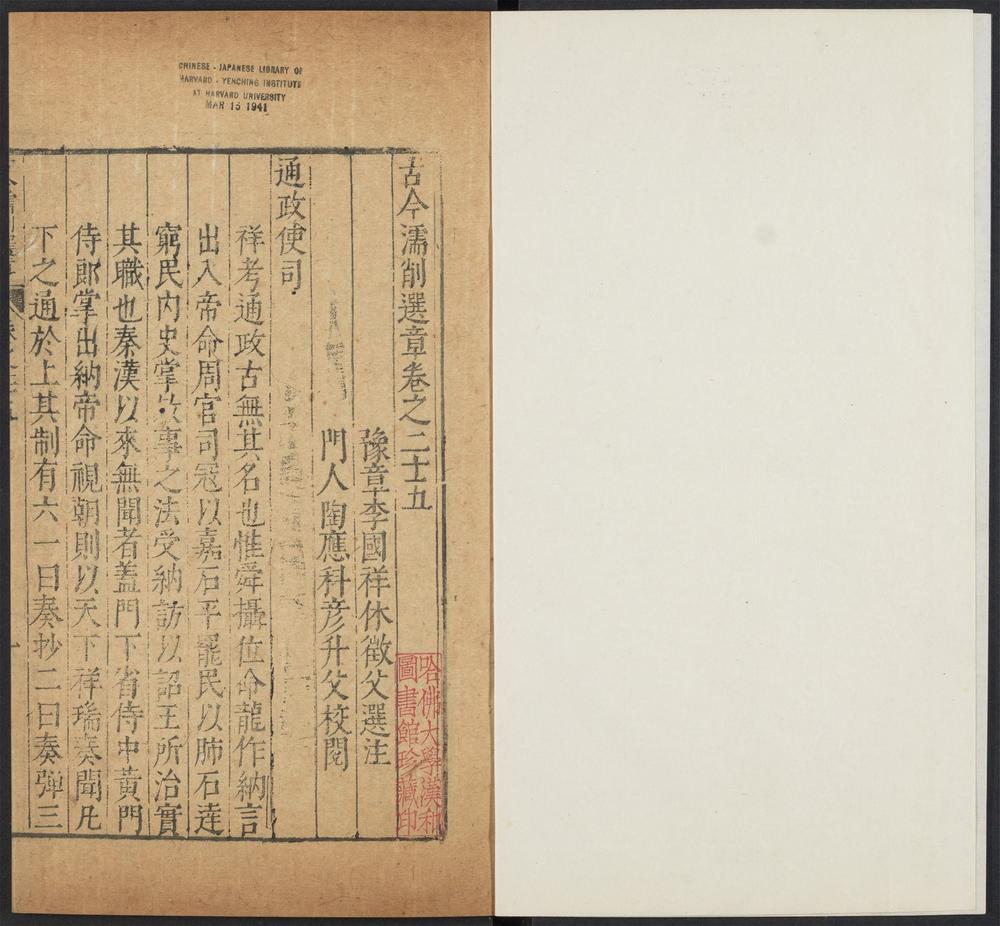 CHINESE - JAPANESE LIBRARY OF
HARVARD - YENCHING INSTITUTE
AT HARVARD UNIVERSITY
MAR 15 1941
古今濡削選章卷之二十五
豫章李國祥休徵父選注
門人陶應科彥升父校閱
通政使司
祥考通政古無其名也惟舜攝位命龍作納言
出入帝命周官司寇以嘉石平罷民以肺石達
窮民內史掌敘事之法受納訪以詔王所治實
其職也秦漢以來無聞者蓋門下省侍中黃門
侍郎掌出納帝命視朝則以天下祥瑞奏聞凡
下之通於上其制有六一曰奏抄二曰奏彈三
哈佛大學漢和
圖書館珍藏印